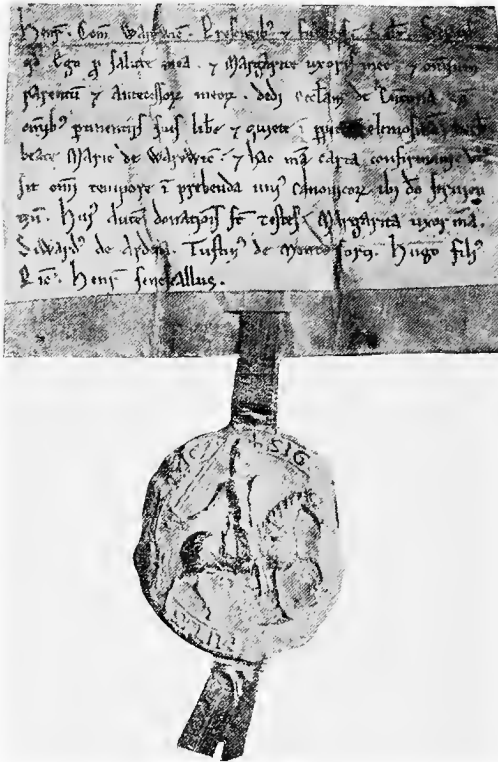 Henr̃. Com̃ Warwic̃. Presentibȝ ⁊ futuris
qđ Ego ꝑ salute mea. ⁊ Margarite uxoris mee. ⁊ omnium
parentũ ⁊ Antecessoꝝ meoꝝ. dedi eccl̃am de
omĩbȝ ptinentijs suis libe ⁊ quiete ĩ elemosinã
beate Marie de Warewic̃. ⁊ hac mea carta confirmaui
sit omĩ tempore ĩ prebenda uniꝰ canonicoꝝ ibi do
Huiꝰ Autẽ donatiõis st̃ testes. Margarita uxor mea.
Siwardꝰ de Ardena. de Monte forti. Hugo filiꝰ
Ric̃. Henr̃ senescallus.
SIG